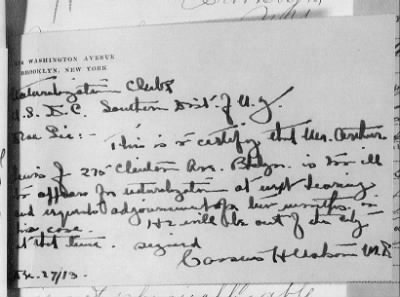 WASHINGTON AVENUE
BROOKLYN, NEW YORK
Naturalization Clerk
U.S. D.C. Southern Dist. of N.Y.
Dear Sir:- This is to certify that Mr. Arthur
of 275 Clinton Ave. Bklyn. is too ill
to appear for naturalization at next hearing
and requests adjournment for two months in
his case. He will be out of the city
at that time. signed
M.D.
27/13.